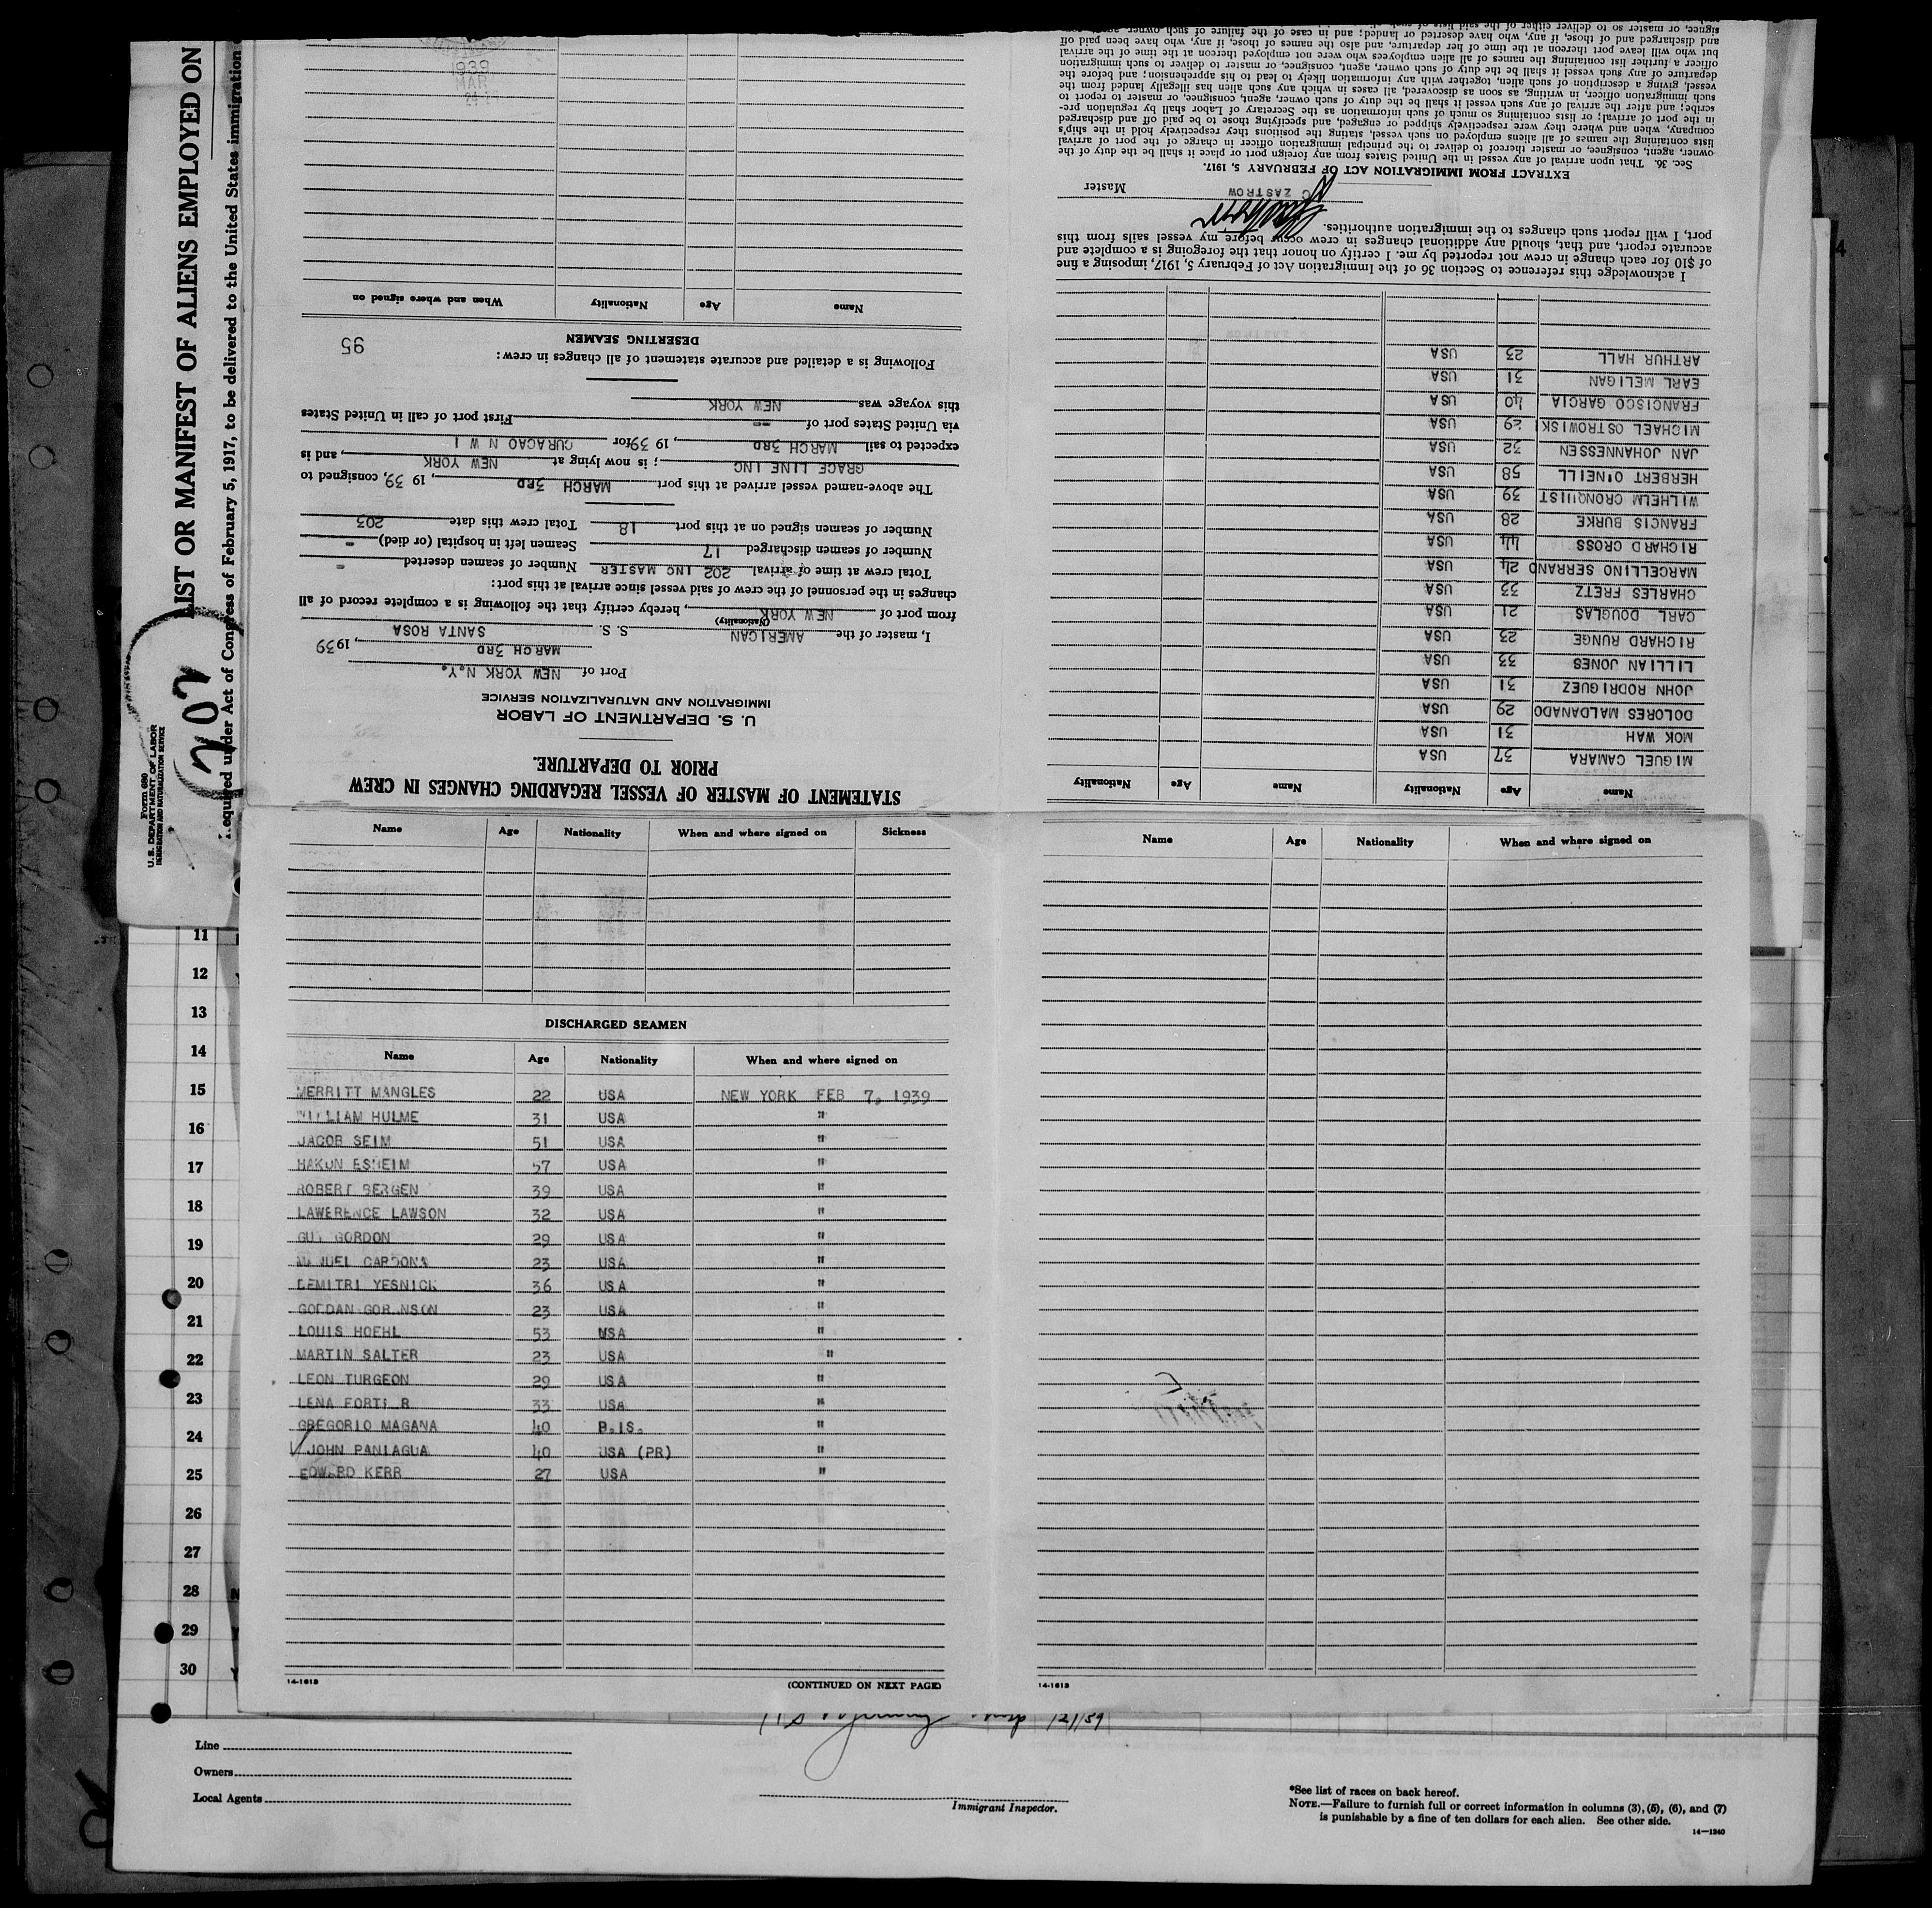 Form 680
U. S. DEPARTMENT OF LABOR
IMMIGRATION AND NATURALIZATION SERVICE
202
LIST OR MANIFEST OF ALIENS EMPLOYED ON
Required under Act of Congress of February 5, 1917, to be delivered to the United States immigration
STATEMENT OF MASTER OF VESSEL REGARDING CHANGES IN CREW
PRIOR TO DEPARTURE.
U. S. DEPARTMENT OF LABOR
IMMIGRATION AND NATURALIZATION SERVICE
Port of NEW YORK N.Y.
MARCH 3RD, 1939
I, master of the AMERICAN S. S. SANTA ROSA
(Nationality)
from port of NEW YORK, hereby certify that the following is a complete record of all
changes in the personnel of the crew of said vessel since arrival at this port:
Total crew at time of arrival 202 INC MASTER Number of seamen deserted -
Number of seamen discharged 17 Seamen left in hospital (or died) -
Number of seamen signed on at this port 18 Total crew this date 203
The above-named vessel arrived at this port MARCH 3RD, 19 39, consigned to
GRACE LINE INC; is now lying at NEW YORK, and is
expected to sail MARCH 3RD, 19 39 for CURACAO N W I
via United States port of -- First port of call in United States
this voyage was NEW YORK
Following is a detailed and accurate statement of all changes in crew:
95
DESERTING SEAMEN
Name Age Nationality When and where signed on
1939
MAR
Name Age Nationality Name Age Nationality
MIGUEL CAMARA 37 USA
MOK WAH 31 USA
DOLORES MALDANADO 29 USA
JOHN RODRIGUEZ 31 USA
LILLIAN JONES 33 USA
RICHARD RUNGE 23 USA
CARL DOUGLAS 21 USA
CHARLES FRETZ 33 USA
MARCELLINO SERRANO 24 USA
RICHARD CROSS 44 USA
FRANCIS BURKE 28 USA
WILHELM CRONQUIST 39 USA
HERBERT O'NEILL 58 USA
JAN JOHANNESSEN 32 USA
MICHAEL OSTROWISKI 29 USA
FRANCISCO GARCIA 40 USA
EARL MELIGAN 31 USA
ARTHUR HALL 23 USA
I acknowledge this reference to Section 36 of the Immigration Act of February 5, 1917, imposing a fine
of $10 for each change in crew not reported by me. I certify on honor that the foregoing is a complete and
accurate report, and that, should any additional changes in crew occur before my vessel sails from this
port, I will report such changes to the immigration authorities.
C ZASTROW Master
EXTRACT FROM IMMIGRATION ACT OF FEBRUARY 5, 1917.
Sec. 36. That upon arrival of any vessel in the United States from any foreign port or place it shall be the duty of the
owner, agent, consignee, or master thereof to deliver to the principal immigration officer in charge of the port of arrival
lists containing the names of all aliens employed on such vessel, stating the positions they respectively hold in the ship's
company, when and where they were respectively shipped or engaged, and specifying those to be paid off and discharged
in the port of arrival; or lists containing so much of such information as the Secretary of Labor shall by regulation pre-
scribe; and after the arrival of any such vessel it shall be the duty of such owner, agent, consignee, or master to report to
such immigration officer, in writing, as soon as discovered, all cases in which any such alien has illegally landed from the
vessel, giving a description of such alien, together with any information likely to lead to his apprehension; and before the
departure of any such vessel it shall be the duty of such owner, agent, consignee, or master to deliver to such immigration
officer a further list containing the names of all alien employees who were not employed thereon at the time of the arrival
but who will leave port thereon at the time of her departure, and also the names of those, if any, who have been paid off
and discharged and of those, if any, who have deserted or landed; and in case of the failure of such owner,
signee, or master so to deliver either of the said lists of such
Name Age Nationality When and where signed on Sickness
DISCHARGED SEAMEN
Name Age Nationality When and where signed on
MERRITT MANGLES 22 USA NEW YORK FEB 7, 1939
WILLIAM HULME 31 USA "
JACOB SEIM 51 USA "
HAKON ESHEIM 57 USA "
ROBERT BERGEN 39 USA "
LAWERENCE LAWSON 32 USA "
GUY GORDON 29 USA "
MANUEL CARDONA 23 USA "
DEMITRI YESNICK 36 USA "
23 USA "
LOUIS HOEHL 53 USA "
MARTIN SALTER 23 USA "
LEON TURGEON 29 USA "
LENA 33 USA "
GREGORIO MAGANA 40 P.IS. "
JOHN PANIAGUA 40 USA (PR) "
EDWARD KERR 27 USA "
14-1613 (CONTINUED ON NEXT PAGE)
Name Age Nationality When and where signed on
14-1613
11
12
13
14
15
16
17
18
19
20
21
22
23
24
25
26
27
28
29
30
4
Line
Owners
Local Agents
Immigrant Inspector.
*See list of races on back hereof.
NOTE.—Failure to furnish full or correct information in columns (3), (5), (6), and (7)
is punishable by a fine of ten dollars for each alien. See other side.
14—1240